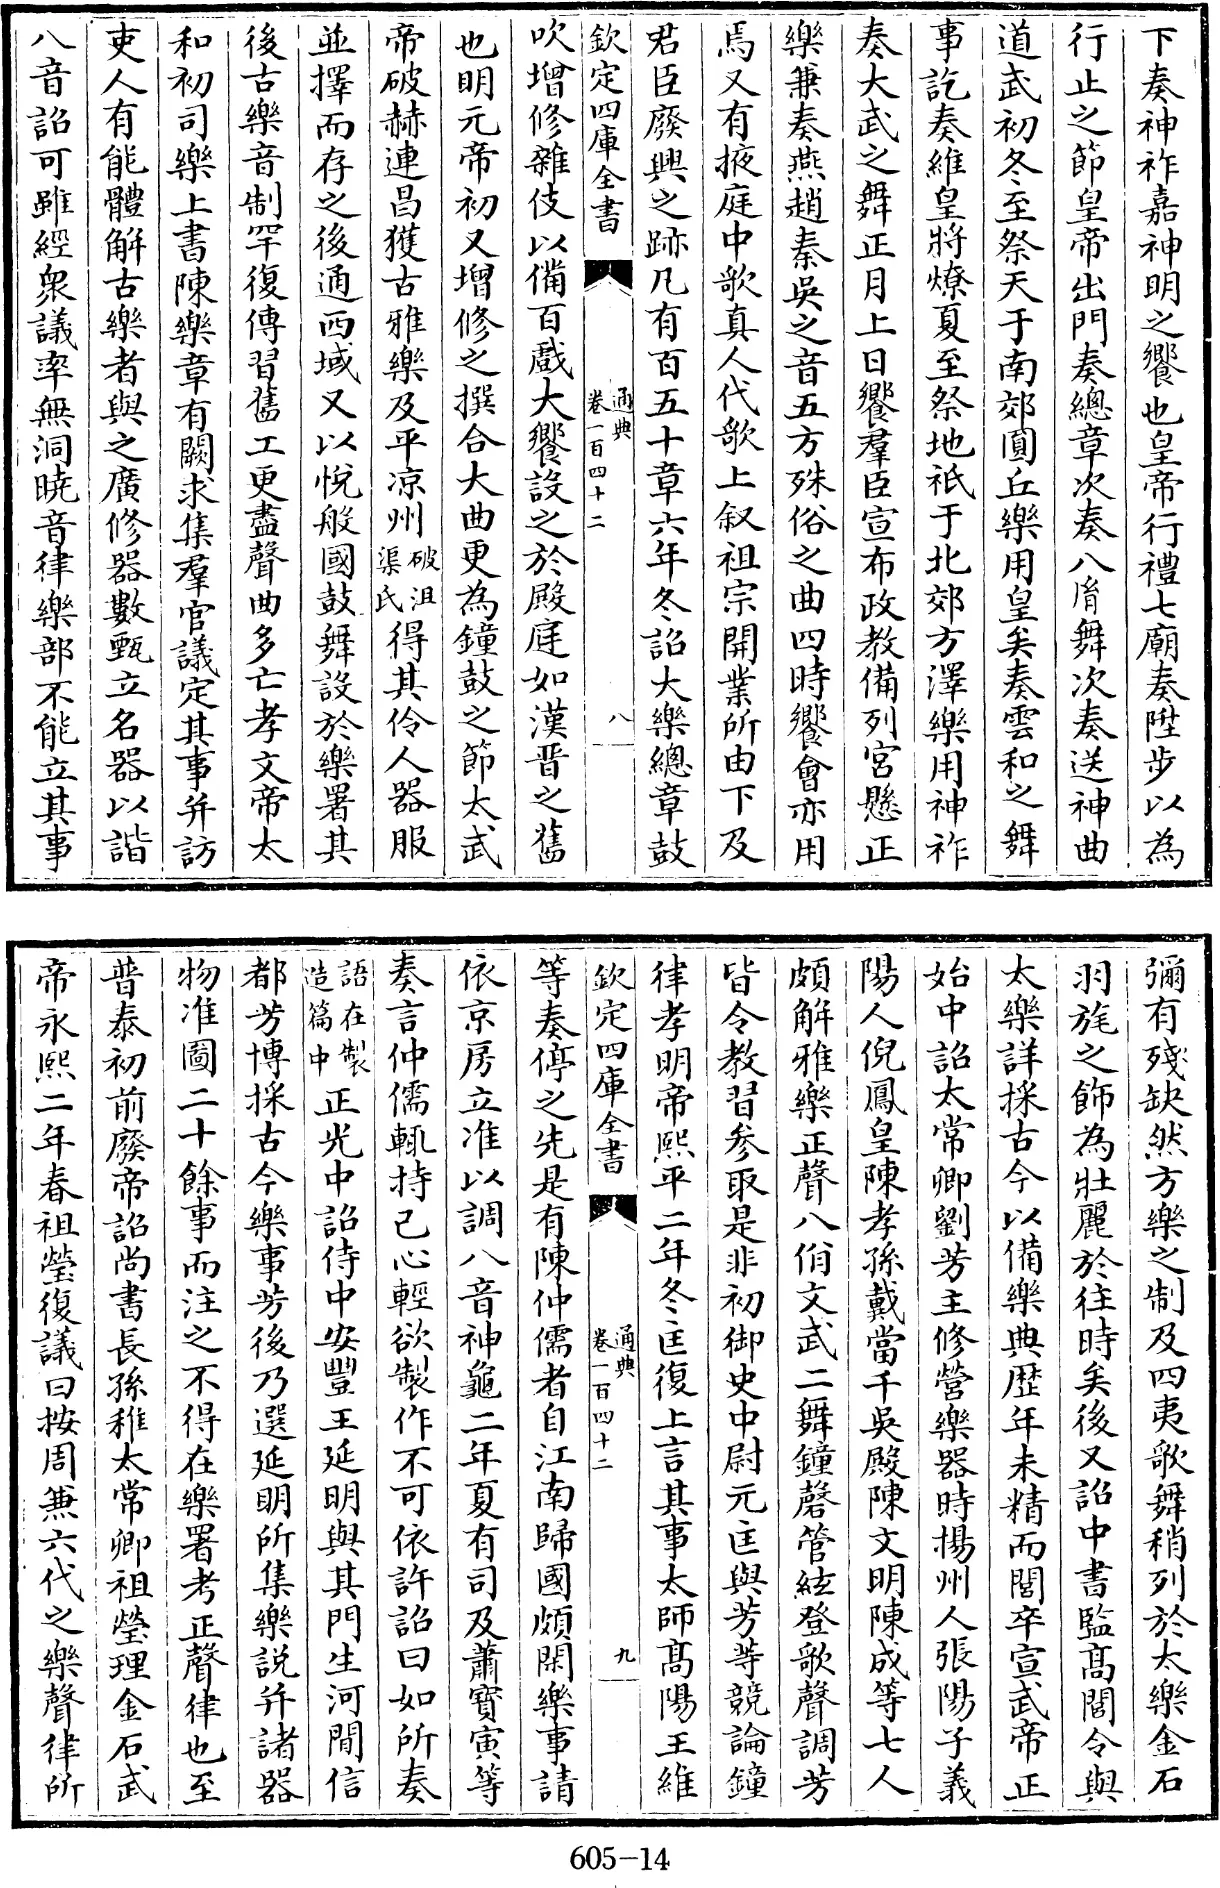 下奏神祚嘉神明之饗也皇帝行禮七廟奏陛步以為
行止之節皇帝出門奏總章次奏八佾舞次奏送神曲
道武初冬至祭天于南郊圓丘樂用皇矣奏雲和之舞
事訖奏維皇將燎夏至祭地祇于北郊方澤樂用神祚
奏大武之舞正月上日饗羣臣宣布政教備列宮懸正
樂兼奏燕趙秦吳之音五方殊俗之曲四時饗會亦用
焉又有掖庭中歌真人代歌上叙祖宗開業所由下及
君臣廢興之跡凡有百五十章六年冬詔大樂總章鼓
欽定四庫全書
通典
卷一百四十二
八
吹增修雜伎以備百戲大饗設之於殿庭如漢晉之舊
也明元帝初又增修之撰合大曲更為鐘鼓之節太武
帝破赫連昌獲古雅樂及平涼州破沮渠氏得其伶人器服
並擇而存之後通西域又以悅般國鼓舞設於樂署其
後古樂音制罕復傳習舊工更盡聲曲多亡孝文帝太
和初司樂上書陳樂章有闕求集羣官議定其事并訪
吏人有能體解古樂者與之廣修器數甄立名器以諧
八音詔可雖經衆議率無洞曉音律樂部不能立其事
彌有殘缺然方樂之制及四夷歌舞稍列於太樂金石
羽旄之飾為壯麗於往時矣後又詔中書監高閭令與
太樂詳採古今以備樂典歷年未精而閭卒宣武帝正
始中詔太常卿劉芳主修營樂器時揚州人張陽子義
陽人倪鳳皇陳孝孫戴當千吳殿陳文明陳成等七人
頗解雅樂正聲八佾文武二舞鐘磬管絃登歌聲調芳
皆令教習參取是非初御史中尉元匡與芳等競論鐘
律孝明帝熙平二年冬匡復上言其事太師高陽王雍
欽定四庫全書
通典
卷一百四十二
九
等奏停之先是有陳仲儒者自江南歸國頗閑樂事請
依京房立准以調八音神龜二年夏有司及蕭寶寅等
奏言仲儒輒持己心輕欲製作不可依許詔曰如所奏
語在製造篇中正光中詔侍中安豐王延明與其門生河間信
都芳博採古今樂事芳後乃選延明所集樂說并諸器
物准圖二十餘事而注之不得在樂署考正聲律也至
普泰初前廢帝詔尚書長孫稚太常卿祖瑩理金石武
帝永熙二年春祖瑩復議曰按周兼六代之樂聲律所
605-14